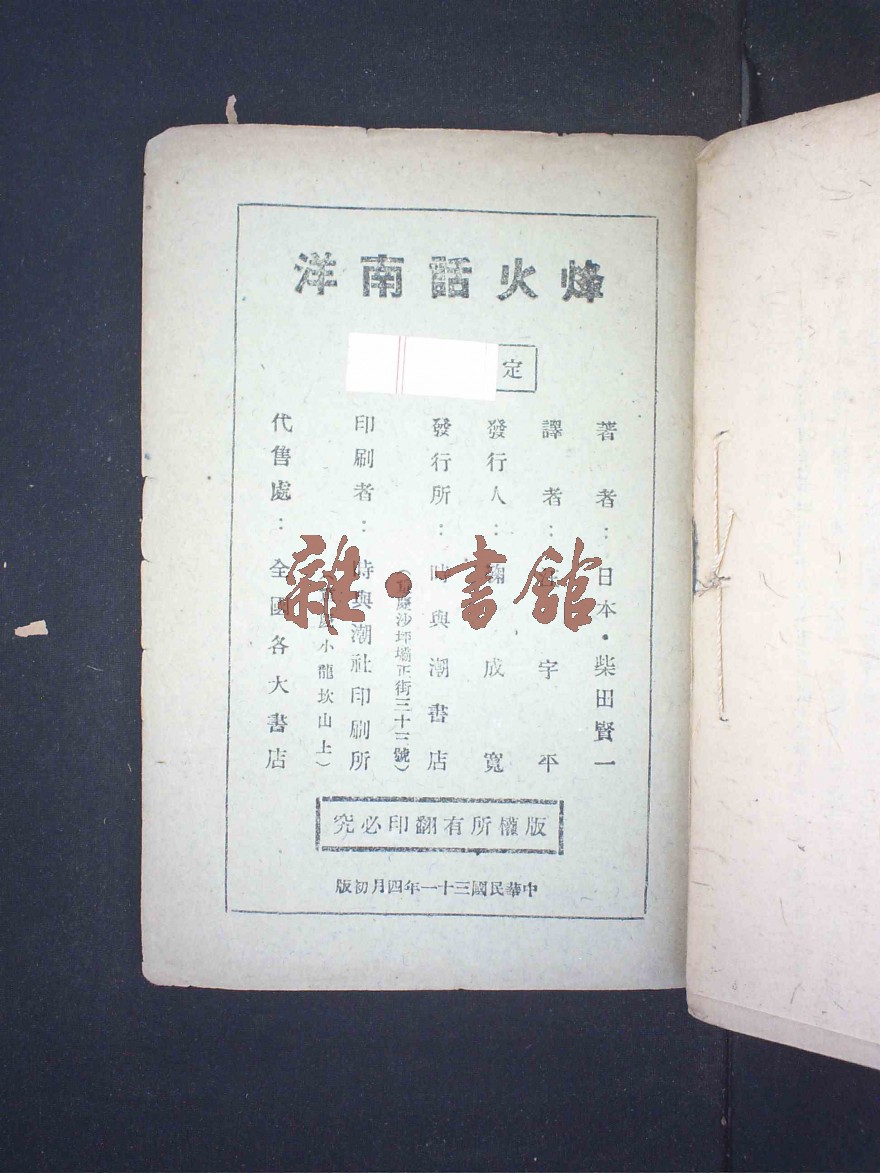 烽火話南洋
定
著者：日本·柴田賢一
譯者：宇平
發行人：成寬
發行所：時與潮書店
慶沙坪壩正街三十三號）
印刷者：時與潮社印刷所
小龍坎山上）
代售處：全國各大書店
版權所有翻印必究
中華民國三十一年四月初版
雜·書館